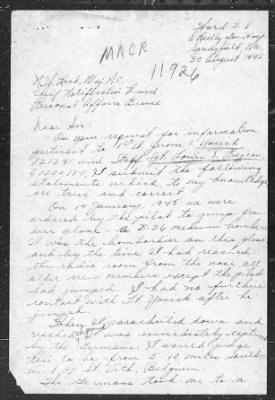 Ward T 8
O'Reilly Gen. Hosp.
Springfield, Mo.
30 August 1945
MACR
11926
N.W. Reed, Maj. AC
Chief Notification Branch
Personal Affairs Division
Dear Sir:
On your request for information
pertinent to 1st Lt. James Yosick
and Staff Sgt. Louis
I submit the following
statements which to my knowledge
are true and correct.
On 14 January, 1945 we were
ordered by the pilot to jump from
our plane - a B-26 medium bomber.
I was the bombardier on this plane
and by the time I had reached
the radio room from the nose all
the crew members except the pilot
had jumped. I had no further
contact with Lt Yosick after he
jumped.
When I parachuted down and
reached ground I was immediately captured
by the Germans. I would judge
this to be from 5-10 miles
of St. Vith, Belgium.
The Germans took me to a